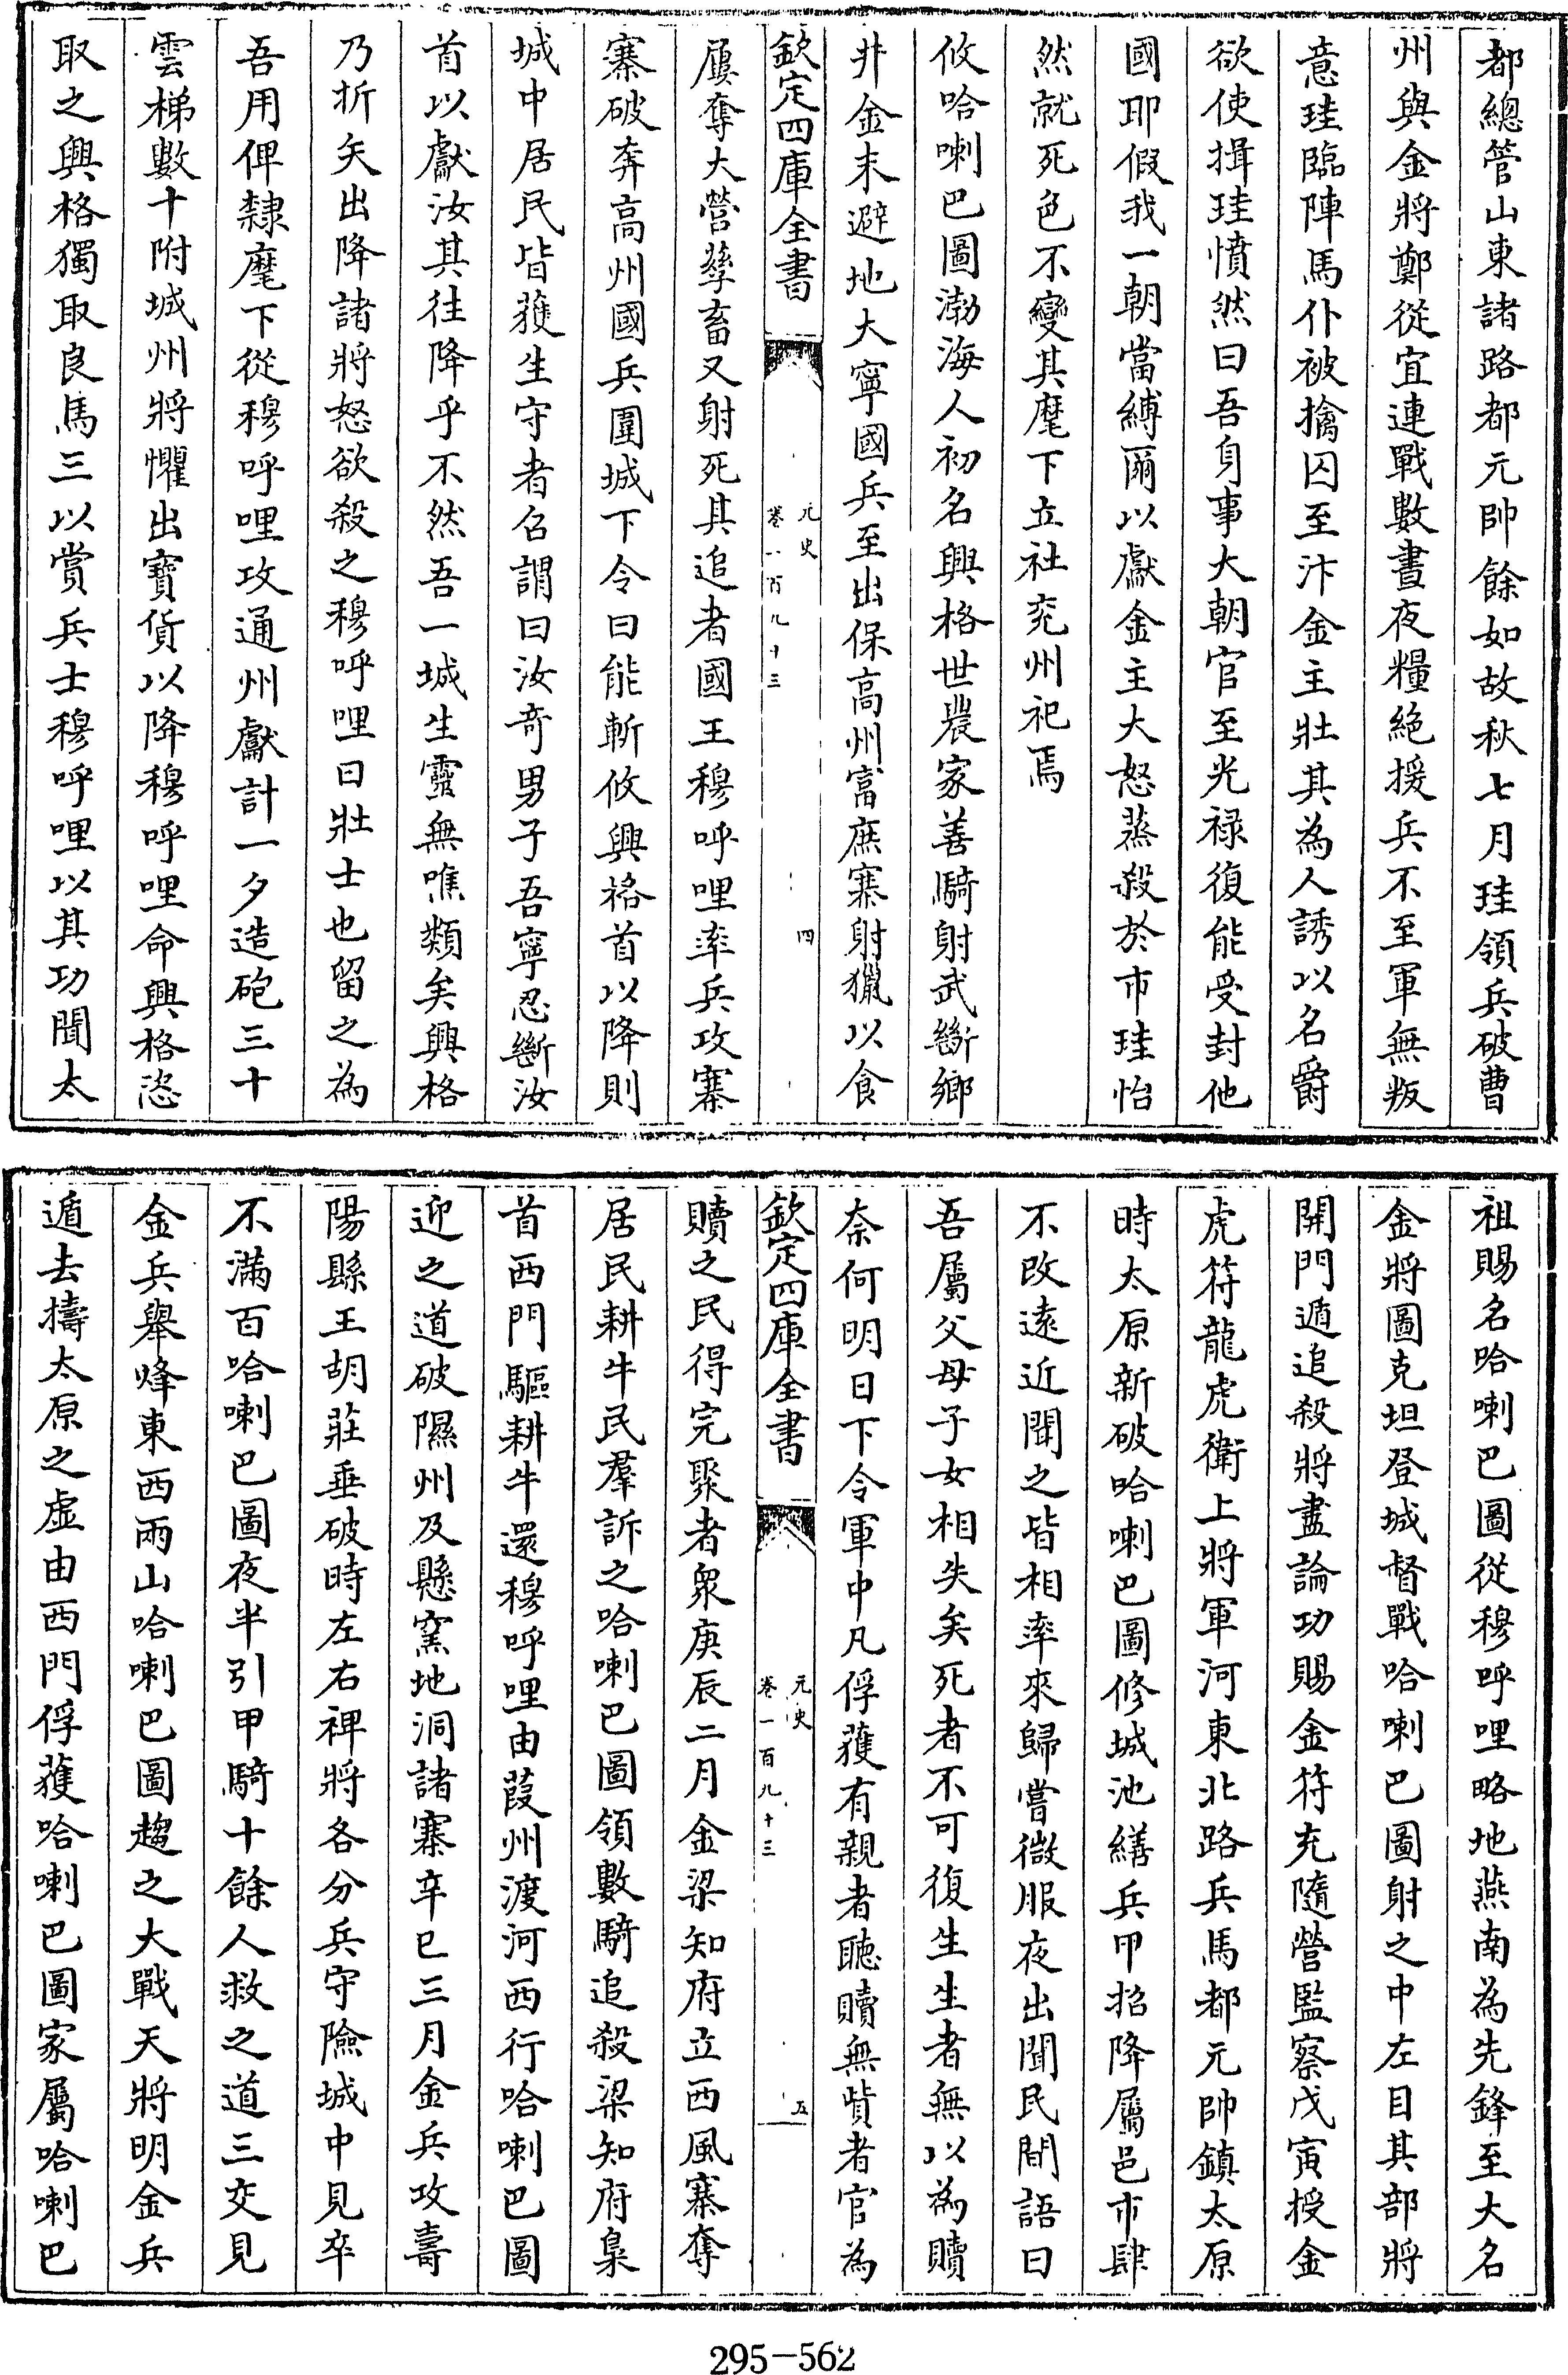 都總管山東諸路都元帥餘如故秋七月珪領兵破曹
州與金將鄭從宜連戰數晝夜糧絕援兵不至軍無叛
意珪臨陣馬仆被擒囚至汴金主壯其為人誘以名爵
欲使揖珪憤然曰吾身事大朝官至光禄復能受封他
國耶假我一朝當縛爾以獻金主大怒蒸殺於市珪怡
然就死色不變其麾下立社兖州祀焉
攸哈喇巴圖渤海人初名興格世農家善騎射武斷鄉
井金末避地大寧國兵至出保高州富庶寨射獵以食
欽定四庫全書
元史
卷一百九十三
四
屢奪大營孳畜又射死其追者國王穆呼哩率兵攻寨
寨破奔高州國兵圍城下令曰能斬攸興格首以降則
城中居民皆獲生守者召謂曰汝奇男子吾寧忍斷汝
首以獻汝其往降乎不然吾一城生靈無噍類矣興格
乃折矢出降諸將怒欲殺之穆呼哩曰壯士也留之為
吾用俾隸麾下從穆呼哩攻通州獻計一夕造砲三十
雲梯數十附城州將懼出寶貨以降穆呼哩命興格恣
取之興格獨取良馬三以賞兵士穆呼哩以其功聞太
祖賜名哈喇巴圖從穆呼哩略地燕南為先鋒至大名
金將圖克坦登城督戰哈喇巴圖射之中左目其部將
開門遁追殺將盡論功賜金符充隨營監察戊寅授金
虎符龍虎衛上將軍河東北路兵馬都元帥鎮太原
時太原新破哈喇巴圖修城池繕兵甲招降屬邑市肆
不改遠近聞之皆相率來歸嘗微服夜出聞民間語曰
吾屬父母子女相失矣死者不可復生生者無以為贖
奈何明日下令軍中凡俘獲有親者聽贖無貲者官為
欽定四庫全書
元史
卷一百九十三
五
贖之民得完聚者衆庚辰二月金梁知府立西風寨奪
居民耕牛民羣訴之哈喇巴圖領數騎追殺梁知府梟
首西門驅耕牛還穆呼哩由葭州渡河西行哈喇巴圖
迎之道破隰州及懸窯地洞諸寨辛巳三月金兵攻壽
陽縣王胡莊垂破時左右裨將各分兵守險城中見卒
不滿百哈喇巴圖夜半引甲騎十餘人救之道三交見
金兵舉烽東西兩山哈喇巴圖趨之大戰天將明金兵
遁去擣太原之虛由西門俘獲哈喇巴圖家屬哈喇巴
295-562